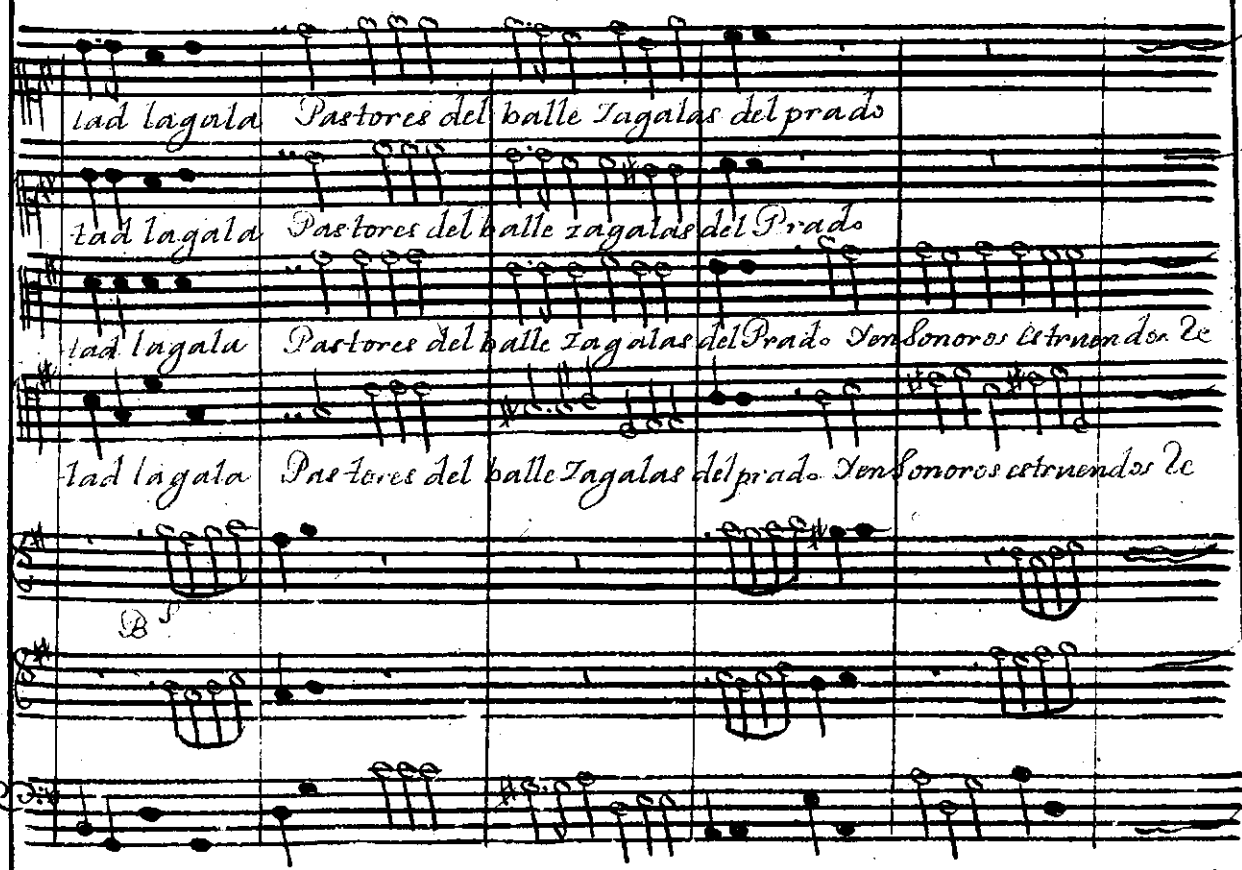 tad lagala Pastores del balle Zagalas del prado
tad lagala Pastores del balle zagalas del Prado
tad lagala Pastores del balle Zagalas del Prado Yen Sonoros estruendos &c
tad lagala Pastores del balle Zagalas del prado Yen Sonoros estruendos &c